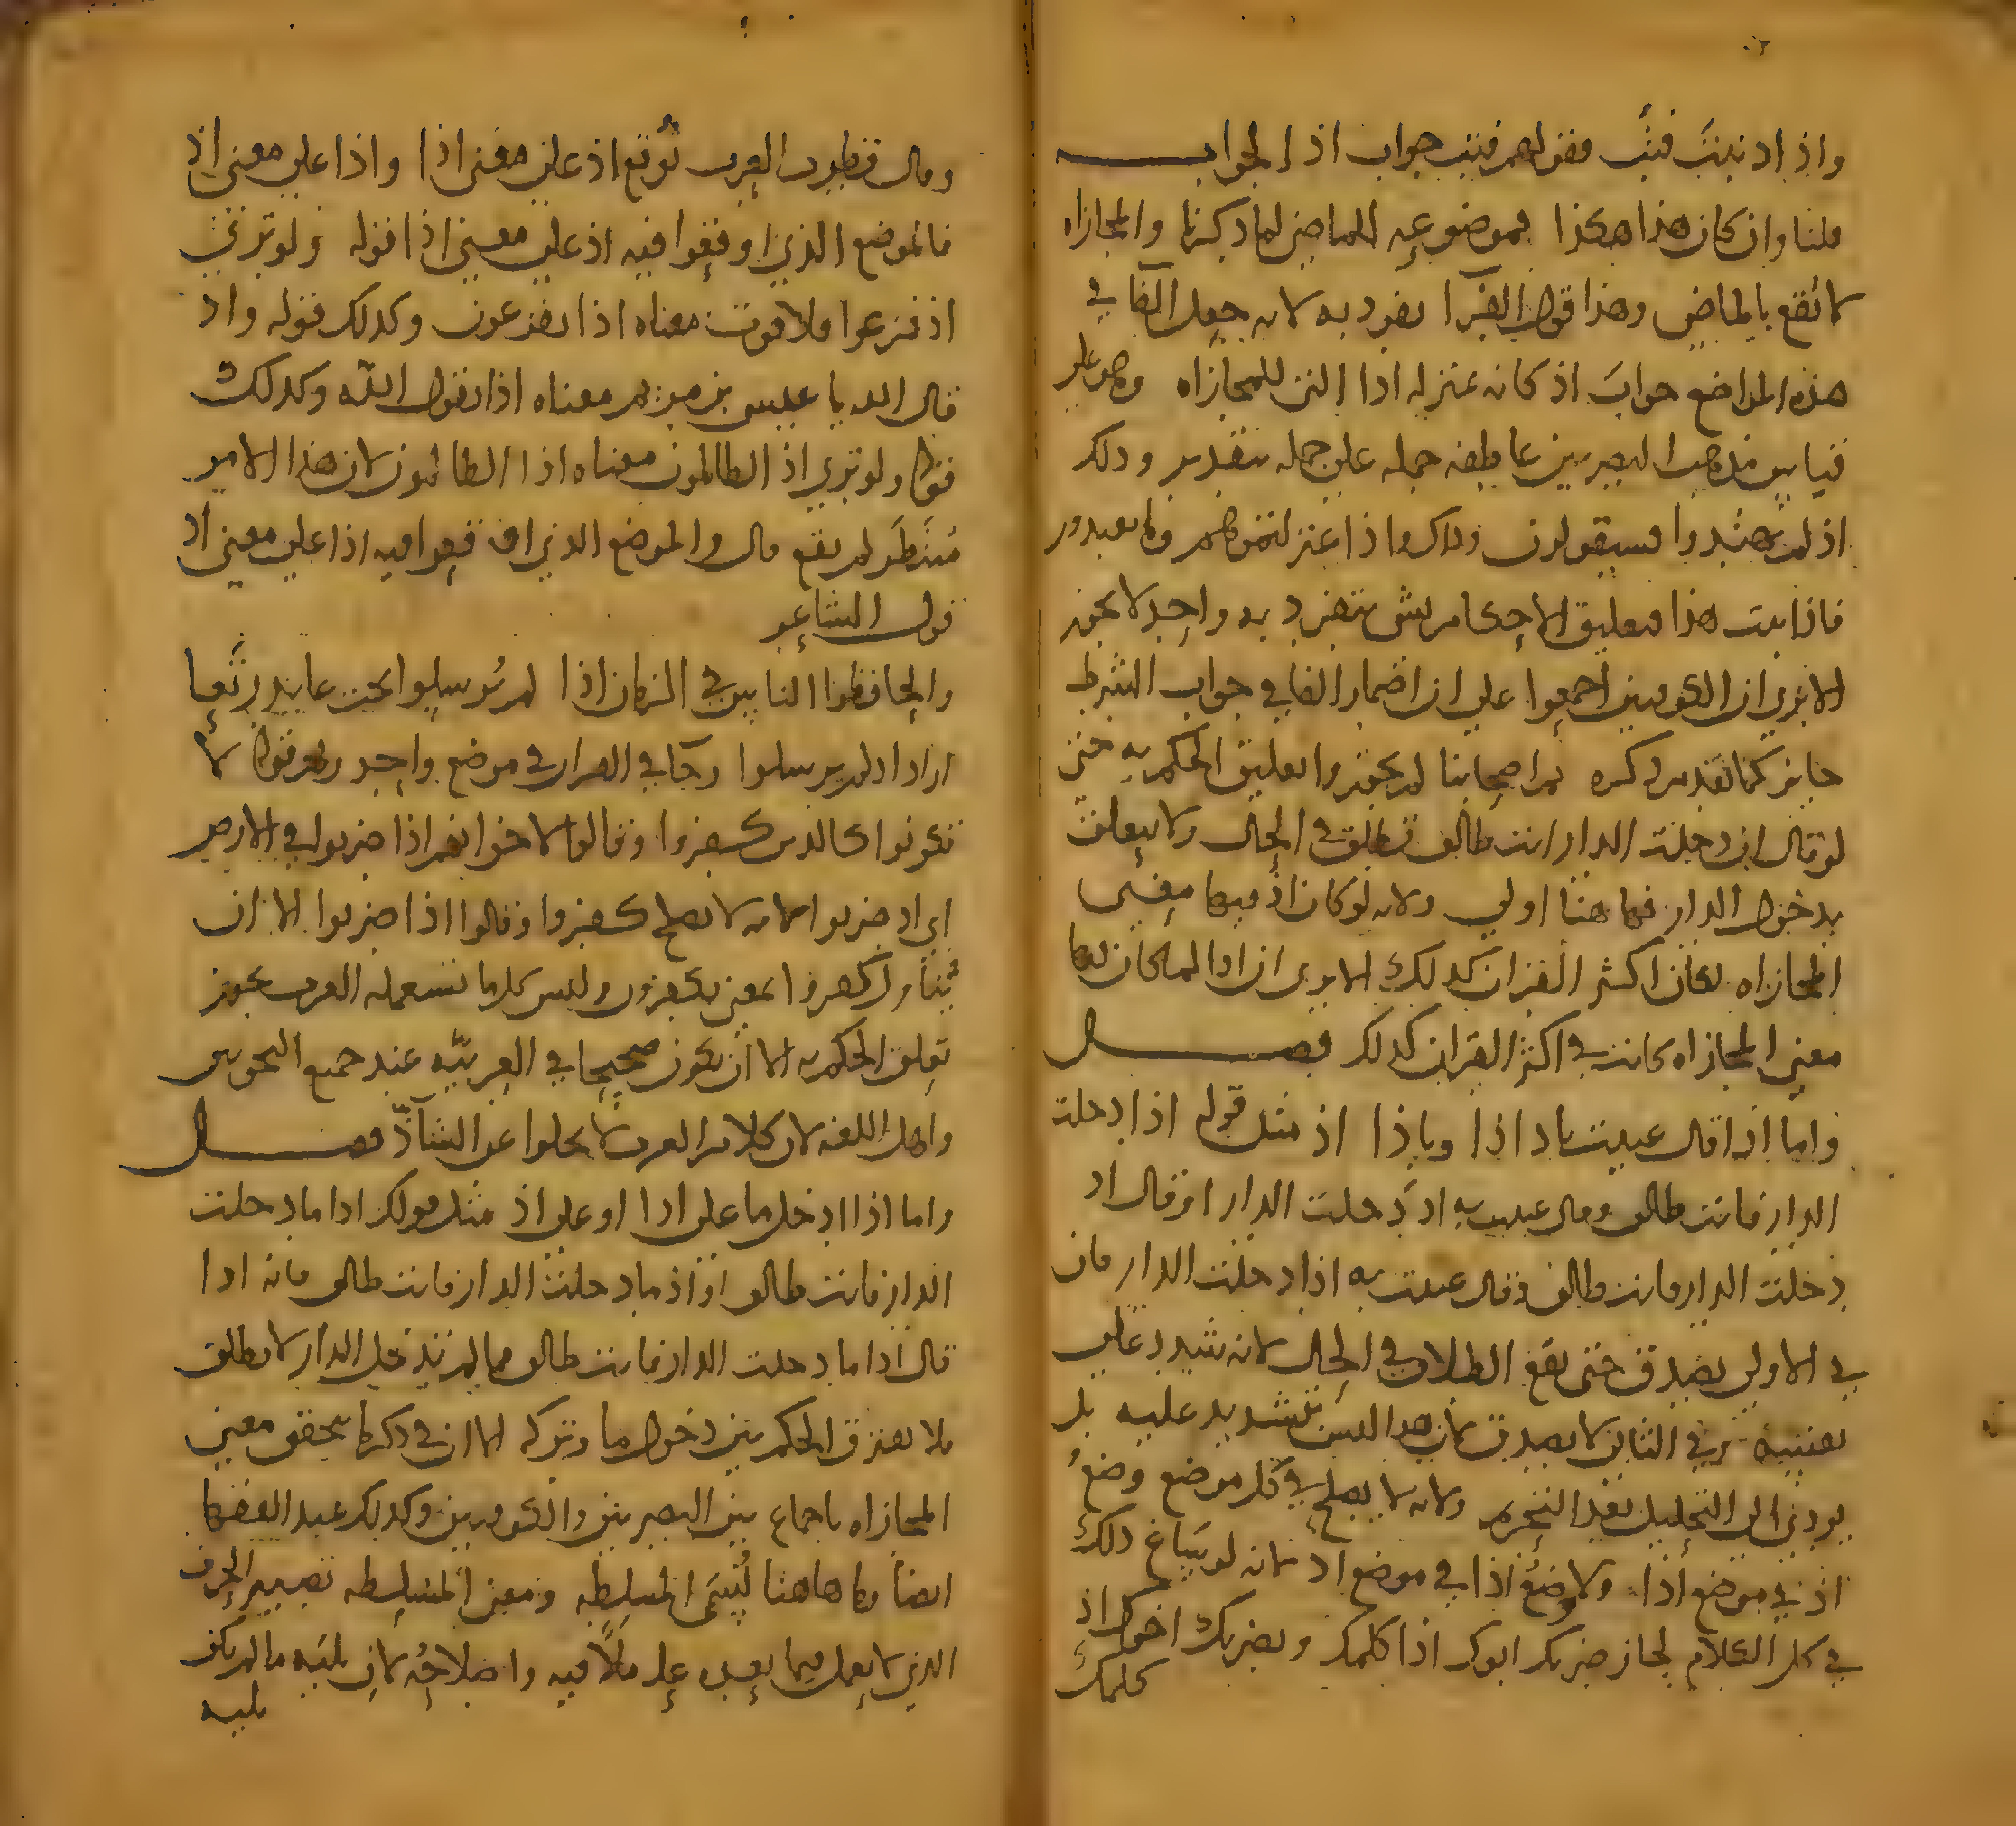 واذ اذ نبتَّ فتبَّ فقولهم فتب جواب اذ الجواب
قلنا وان كان هذا هكذا فموضوعه للماضي لما ذكرنا والمجازاه
لا تقع بالماضي وهذا قول الفرّا تفرد به لانه جعل الفا في
هذه المواضع جواب اذ كانه بمنزله اذا التي للمجازاه وهو على
قياس مذهب البصريين عاطفه جمله على جمله بتقدير وذلك
اذ لم يهتدوا فسيقولون وذلك واذ اعتزلتموهم وما يعبدون
فاذا ثبت هذا فتعليق الاحكام بشي يتفرد به واحد لا يجوز
الا ترى ان الكوفيين اجمعوا على ان اضمار الفا في جواب الشرط
جايز كما تقدم ذكره ثم اصحابنا لم يجوزوا تعليق الحكم به حتى
لو قال ان دخلت الدار انت طالق تطلق في الحال ولا يتعلق
بدخول الدار فها هنا اولى ولانه لو كان اذ فيها معنى
المجازاه لكان اكثر القران كذلك الا ترى ان اذا لما كان فيها
معنى المجازاه كانت في اكثر القران كذلك فصل
واما اذا قال عنيت باذ اذا وباذا اذ مثل قوله اذا دخلت
الدار فانت طالق وقال عنيت به اذ دخلت الدار او قال اذ
دخلت الدار فانت طالق وقال عنيت به اذا دخلت الدار فان
في الاولى يصدق حتى يقع الطلاق في الحال لانه شدد على
نفسه وفي الثاني لا يصدق لان هذا ليس بتشديد عليه بل
يودي الى التحليل بعد التحريم ولانه لا يصلح في كل موضع وضعُ
اذ في موضع اذا ولا وضع اذا في موضع اذ لانه لو ساغ ذلك
في كل الكلام لجاز ضربك ابوك اذا كلمك ويضربك اخوك اذ
كلمك
وقال قطرب العرب توقع اذ على معنى اذا واذا على معنى اذ
فالموضع الذي اوقعوا فيه اذ على معنى اذا قوله ولو ترى
اذ فزعوا فلا فوت معناه اذا يفزعون وكذلك قوله واذ
قال الله يا عيسى بن مريم معناه اذا يقول الله وكذلك
قوله ولو ترى اذ الظالمون معناه اذا الظالمون لان هذا الامر
مُنتظَر لم يقع قال والموضع الذي اوقعوا فيه اذا على معنى اذ
قول الشاعر
والحافظوا الناس في الزمان اذا لم يُرسلوا تحت عايذ رُبَعا
اراد اذ لم يرسلوا وجا في القران في موضع واحد وهو قوله لا
تكونوا كالذين كفروا وقالوا لاخوانهم اذا ضربوا في الارض
اي اذ ضربوا لانه لا يصلح كفروا وقالوا اذا ضربوا الا ان
يُتناول كفروا بمعنى يكفرون وليس كلما تستعمله العرب يجوز
تعلق الحكم به الا ان يكون صحيحا في العربيّه عند جميع النحويين
واهل اللغه لان كلام العرب لا يخلوا عن الشاذّ فصل
واما اذا ادخل ما على اذا او على اذ مثل قولك اذا ما دخلت
الدار فانت طالق او اذ ما دخلت الدار فانت طالق فانه اذا
قال اذا ما دخلت الدار فانت طالق فما لم تدخل الدار لا تطلق
فلا يفترق الحكم بين دخول ما وتركه الا ان في ذكرها يتحقق معنى
المجازاه باجماع بين البصريين والكوفيين وكذلك عند الفقها
ايضا وما هاهنا يُسمى المسلطه ومعنى المسلطه تصيير الحرف
الذي لا يعمل فيما بعده عاملًا فيه واصلاحُه لان يليه ما لم يكن
يليه